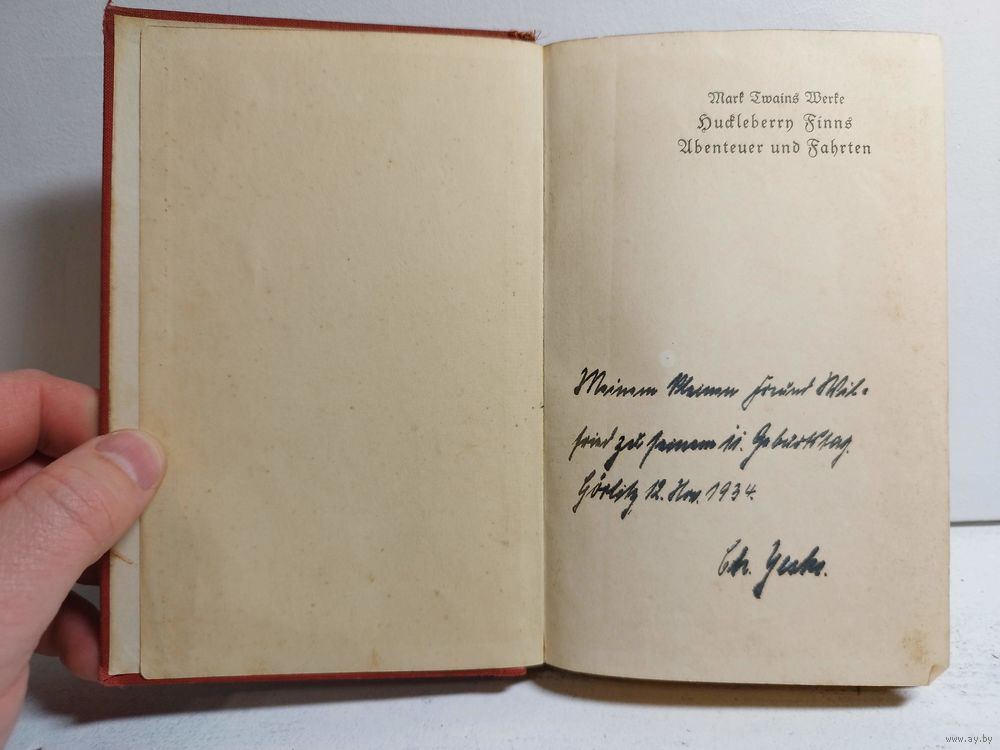 Mark Twains Werke
Huckleberry Finns
Abenteuer und Fahrten
Meinem kleinen Freund Wil-
fried zu seinem 11. Geburtstag.
Görlitz, 12. Nov. 1934.
Chr.
www.ay.by